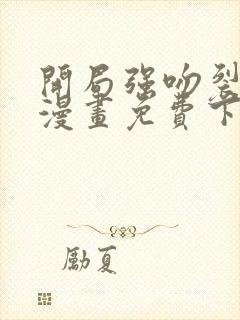 開局強吻裂
漫畫免費下
勵夏